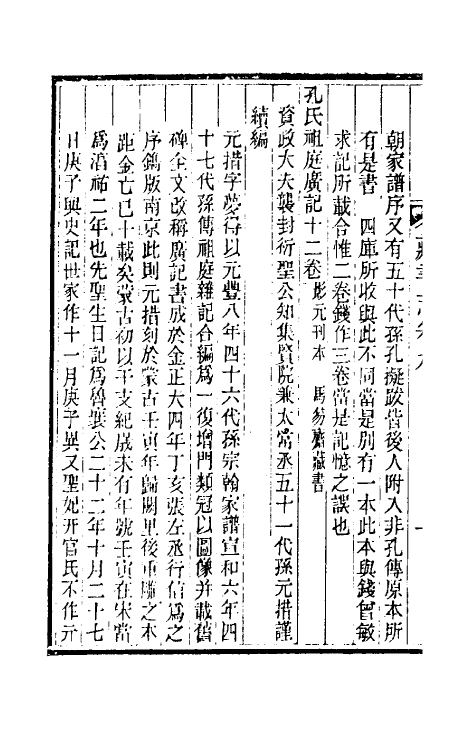 朝家譜序又有五十代孫孔擬跋皆後人附入非孔傳原本所
有是書　四庫所收與此不同當是別有一本此本與錢曾敏
求記所載合惟二卷錢作三卷當是記憶之誤也
孔氏祖庭廣記十二卷 影元刊本　馬易齋藏書
資政大夫襲封衍聖公知集賢院兼太常丞五十一代孫元措謹
續編
元措字夢得以元豐八年四十六代孫宗翰家譜宣和六年四
十七代孫傳祖庭雜記合編爲一復增門類冠以圖像并載舊
碑全文改稱廣記書成於金正大四年丁亥張左丞行信爲之
序鋟版南京此則元措刻於蒙古壬寅年歸闕里後重雕之本
距金亡已十載矣蒙古初以干支紀歲未有年號壬寅在宋當
爲淳祐二年也先聖生日記爲魯襄公二十二年十月二十七
日庚子與史記世家作十一月庚子異又聖妃幵官氏不作元